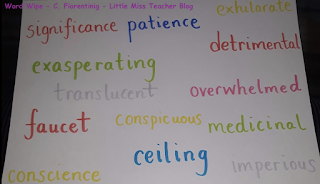 Word Wipe - C. Fiorentino - Little Miss Teacher Blog
exhilarate
significance patience
detrimental
exasperating
translucent overwhelmed
faucet conspicuous medicinal
ceiling
conscience imperious